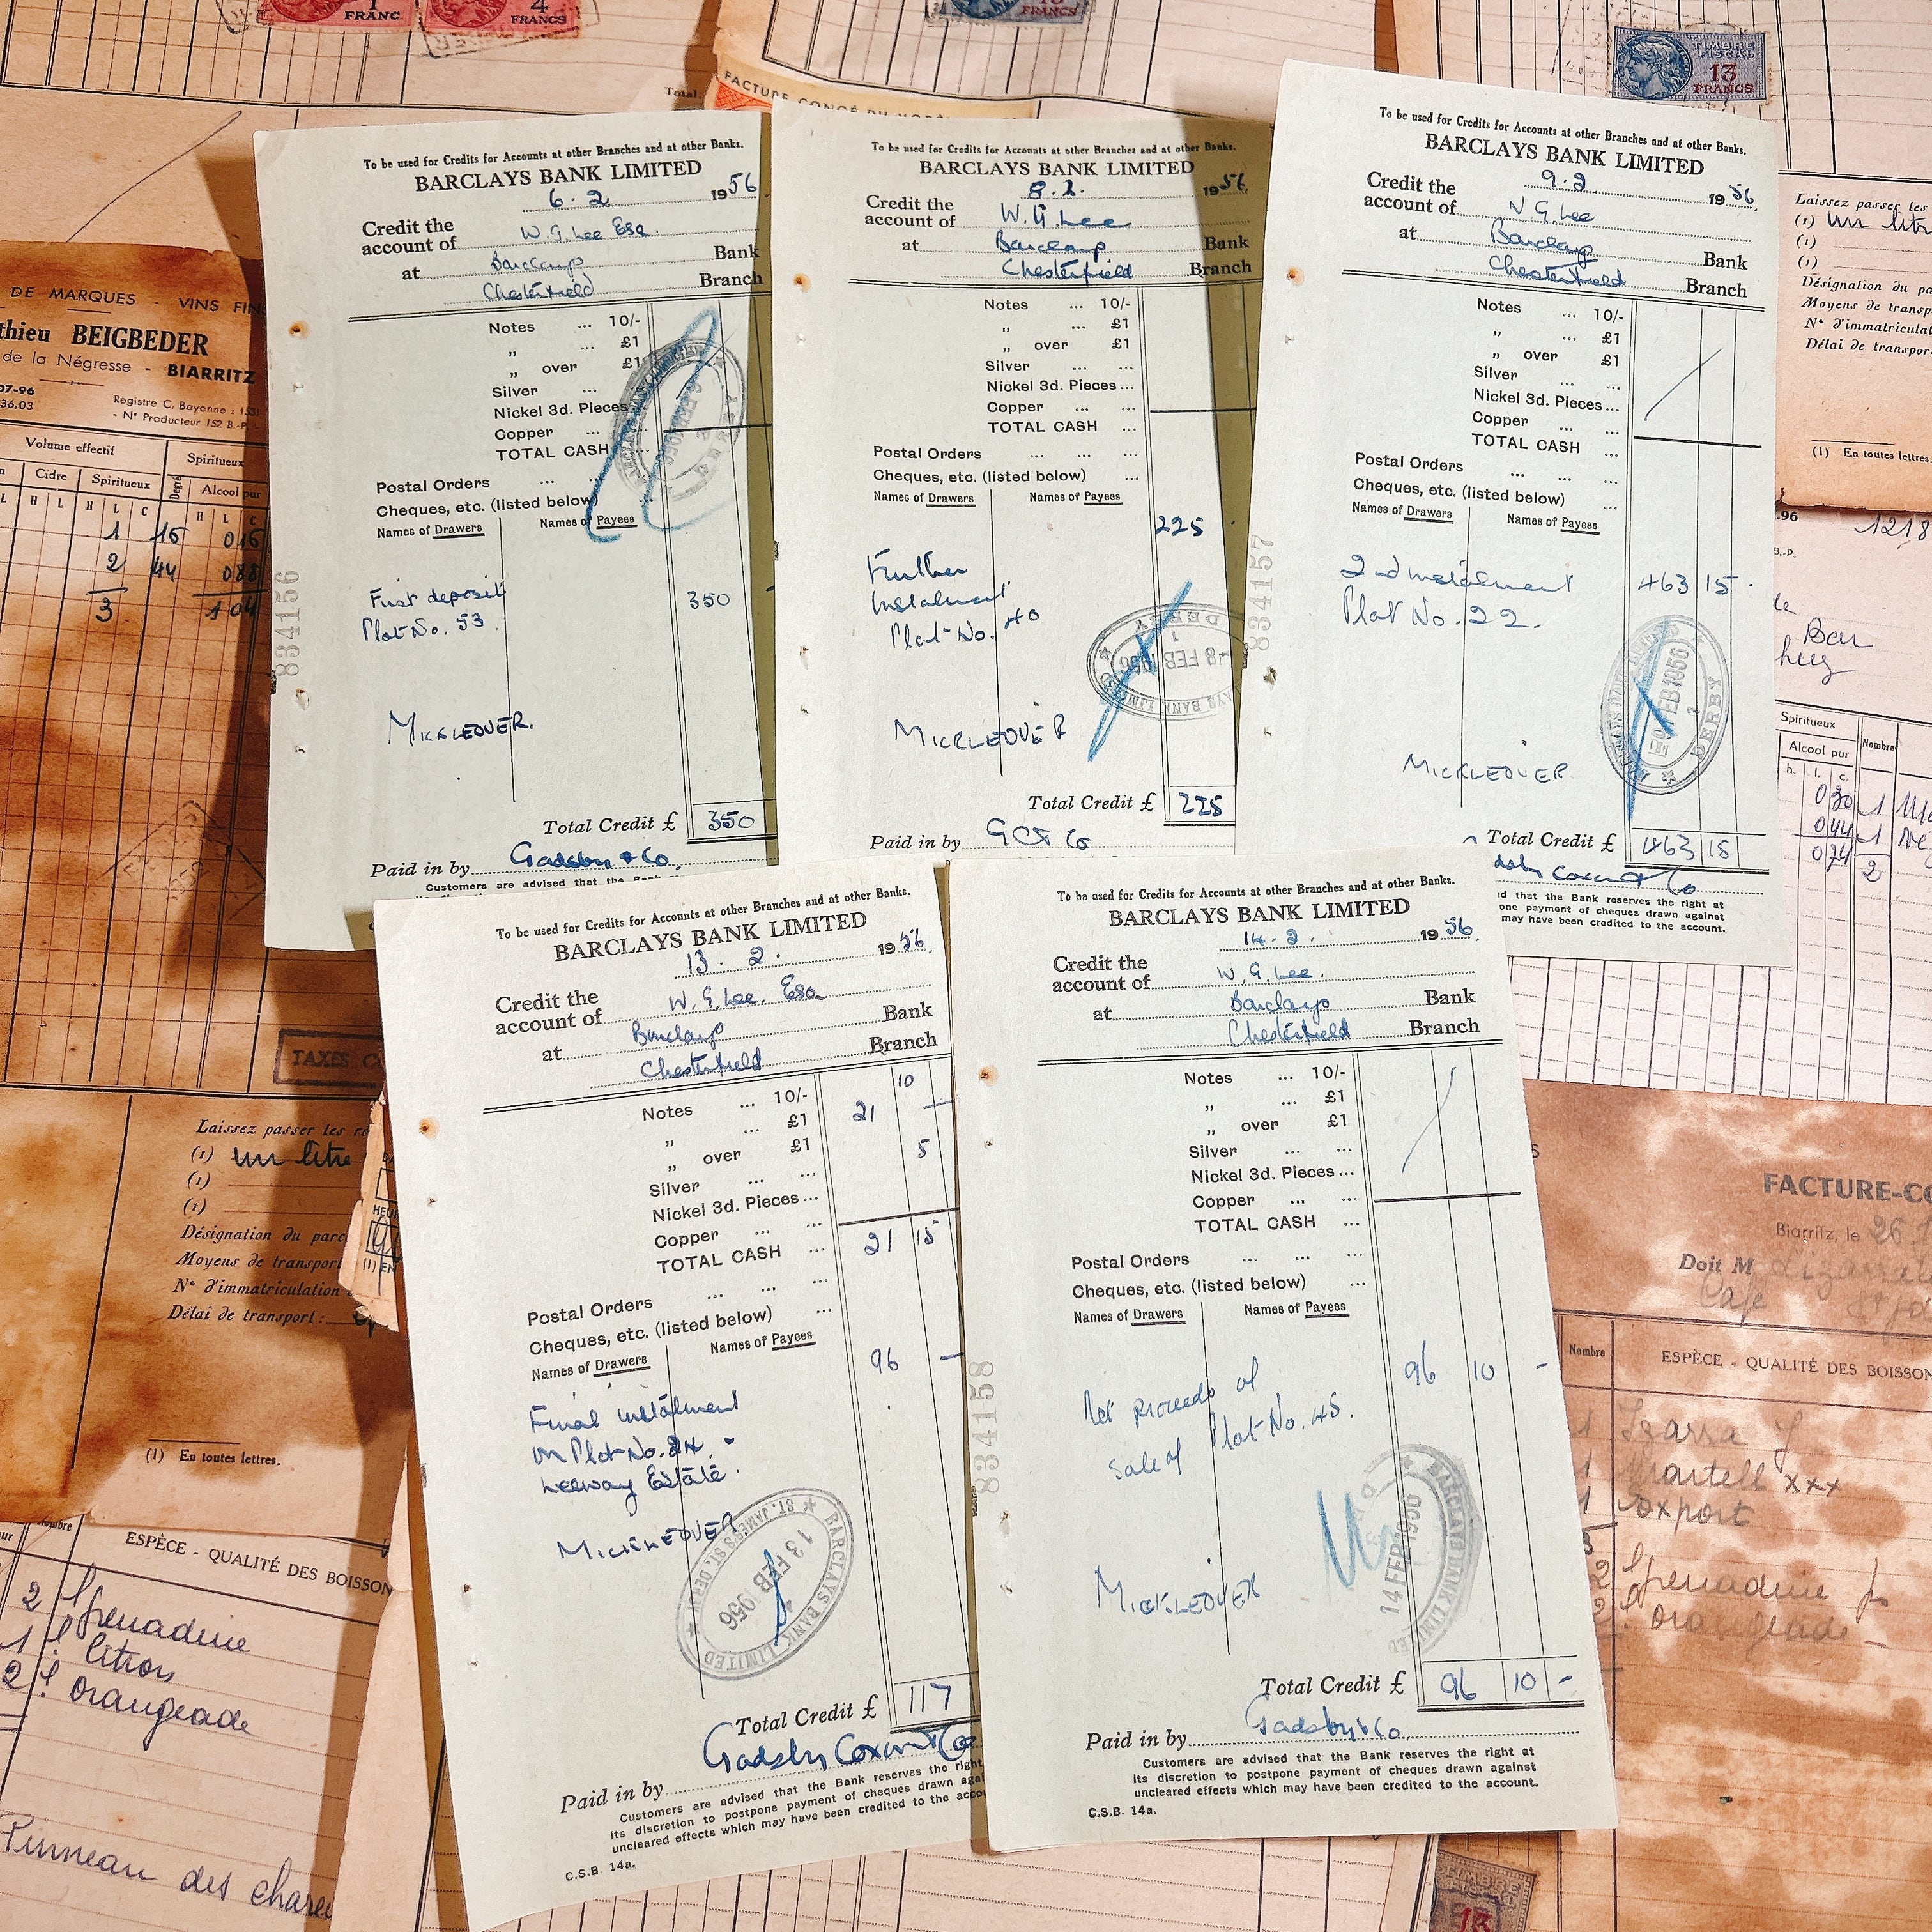 1
FRANC
4
FRANCS
FRANCS
TIMBRE
FISCAL
13
FRANCS
Total.
FACTURE CONGÉ DU
To be used for Credits for Accounts at other Branches and at other Banks.
BARCLAYS BANK LIMITED
6 . 2 1956
Credit the
account of W. G. Lee Esq.
at Barclays Bank
Chesterfield Branch
Notes ... 10/-
„ ... £1
„ over £1
Silver ... ...
Nickel 3d. Pieces
Copper ...
TOTAL CASH
Postal Orders ... ...
Cheques, etc. (listed below)
Names of Drawers Names of Payees
First deposit 350
Plot No. 53.
MICKLEOVER.
834156
Total Credit £ 350
Paid in by Gadsby & Co.
Customers are advised that the Bank
To be used for Credits for Accounts at other Branches and at other Banks.
BARCLAYS BANK LIMITED
8.2. 1956
Credit the
account of W. G. Lee
at Barclays Bank
Chesterfield Branch
Notes ... 10/-
„ ... £1
„ over £1
Silver ... ...
Nickel 3d. Pieces ...
Copper ... ...
TOTAL CASH ...
Postal Orders ... ... ...
Cheques, etc. (listed below) ...
Names of Drawers Names of Payees
225
Further
Instalment
Plot No. 40
8 FEB 1956
DERBY
MICKLEOVER
Total Credit £ 225
Paid in by G C & Co
To be used for Credits for Accounts at other Branches and at other Banks.
BARCLAYS BANK LIMITED
9.2. 1956
Credit the
account of W G. Lee
at Barclays Bank
Chesterfield Branch
Notes ... 10/-
„ ... £1
„ over £1
Silver ... ...
Nickel 3d. Pieces ...
Copper ... ...
TOTAL CASH ...
Postal Orders ... ...
Cheques, etc. (listed below) ...
Names of Drawers Names of Payees
834157
2nd instalment 463 15 -
Plot No. 22.
FEB 1956
DERBY
MICKLEOVER
Total Credit £ 463 15
Coxon & Co
d that the Bank reserves the right at
one payment of cheques drawn against
may have been credited to the account.
To be used for Credits for Accounts at other Branches and at other Banks.
BARCLAYS BANK LIMITED
13. 2. 1956.
Credit the
account of W. G. Lee. Esq
at Barclays Bank
Chesterfield Branch
Notes ... 10/- 10
„ ... £1 21 -
„ over £1 5
Silver ... ...
Nickel 3d. Pieces ...
Copper ... ...
TOTAL CASH ... 21 15
Postal Orders ... ... ...
Cheques, etc. (listed below) ...
Names of Drawers Names of Payees
96 -
Final instalment
on Plot No. 24.
Leeway Estate.
MICKLEOVER.
BARCLAYS BANK LIMITED
13 FEB 1956
ST. JAMES'S ST. DERBY
Total Credit £ 117
Paid in by Gadsby Coxon & Co
Customers are advised that the Bank reserves the right
its discretion to postpone payment of cheques drawn aga
uncleared effects which may have been credited to the acco
C.S.B. 14a.
To be used for Credits for Accounts at other Branches and at other Banks.
BARCLAYS BANK LIMITED
14.2. 1956.
Credit the
account of W. G. Lee.
at Barclays Bank
Chesterfield Branch
Notes ... 10/-
„ ... £1
„ over £1
Silver ... ...
Nickel 3d. Pieces ...
Copper ... ...
TOTAL CASH ...
Postal Orders ... ... ...
Cheques, etc. (listed below) ...
Names of Drawers Names of Payees
834158
Net proceeds of 96 10 -
sale of Plot No. 45.
14 FEB 1956
BARCLAYS BANK LIMITED
MICKLEOVER
Total Credit £ 96 10 -
Paid in by Gadsby & Co.
Customers are advised that the Bank reserves the right at
its discretion to postpone payment of cheques drawn against
uncleared effects which may have been credited to the account.
C.S.B. 14a.
DE MARQUES - VINS FINS
thieu BEIGBEDER
de la Négresse - BIARRITZ
07-96
36.03
Registre C. Bayonne : 1531
- N° Producteur 152 B.-P.
Volume effectif Spiritueux
Cidre Spiritueux Degré Alcool pur
L H L C H L C H L C
1 16 0 16
2 44 0 88
3 1 04
TAXES
Laissez passer les
(1) un litre
(1)
(1)
Désignation du parc
Moyens de transpor
N° d'immatriculation
Délai de transport :
(1) En toutes lettres.
Nombre
ESPÈCE - QUALITÉ DES BOISSON
2 l grenadine
1 l citron
2 l orangeade
Pinneau des chare
Laissez passer les
(1) un litr
(1)
(1)
Désignation du pa
Moyens de transp
N° d'immatricula
Délai de transpor
(1) En toutes lettres
.96
B.-P.
1218
Bar
Spiritueux
Alcool pur
Nombre
h. l. c.
0 30 1
0 44 1
0 74 2
FACTURE-CO
Biarritz, le 26
Doit M
Cafe
Nombre
ESPÈCE - QUALITÉ DES BOISSON
1 Izarra J
1 Martell xxx
1 Export
2 l grenadine
2 l orangeade
TIMBRE
FISCAL
13